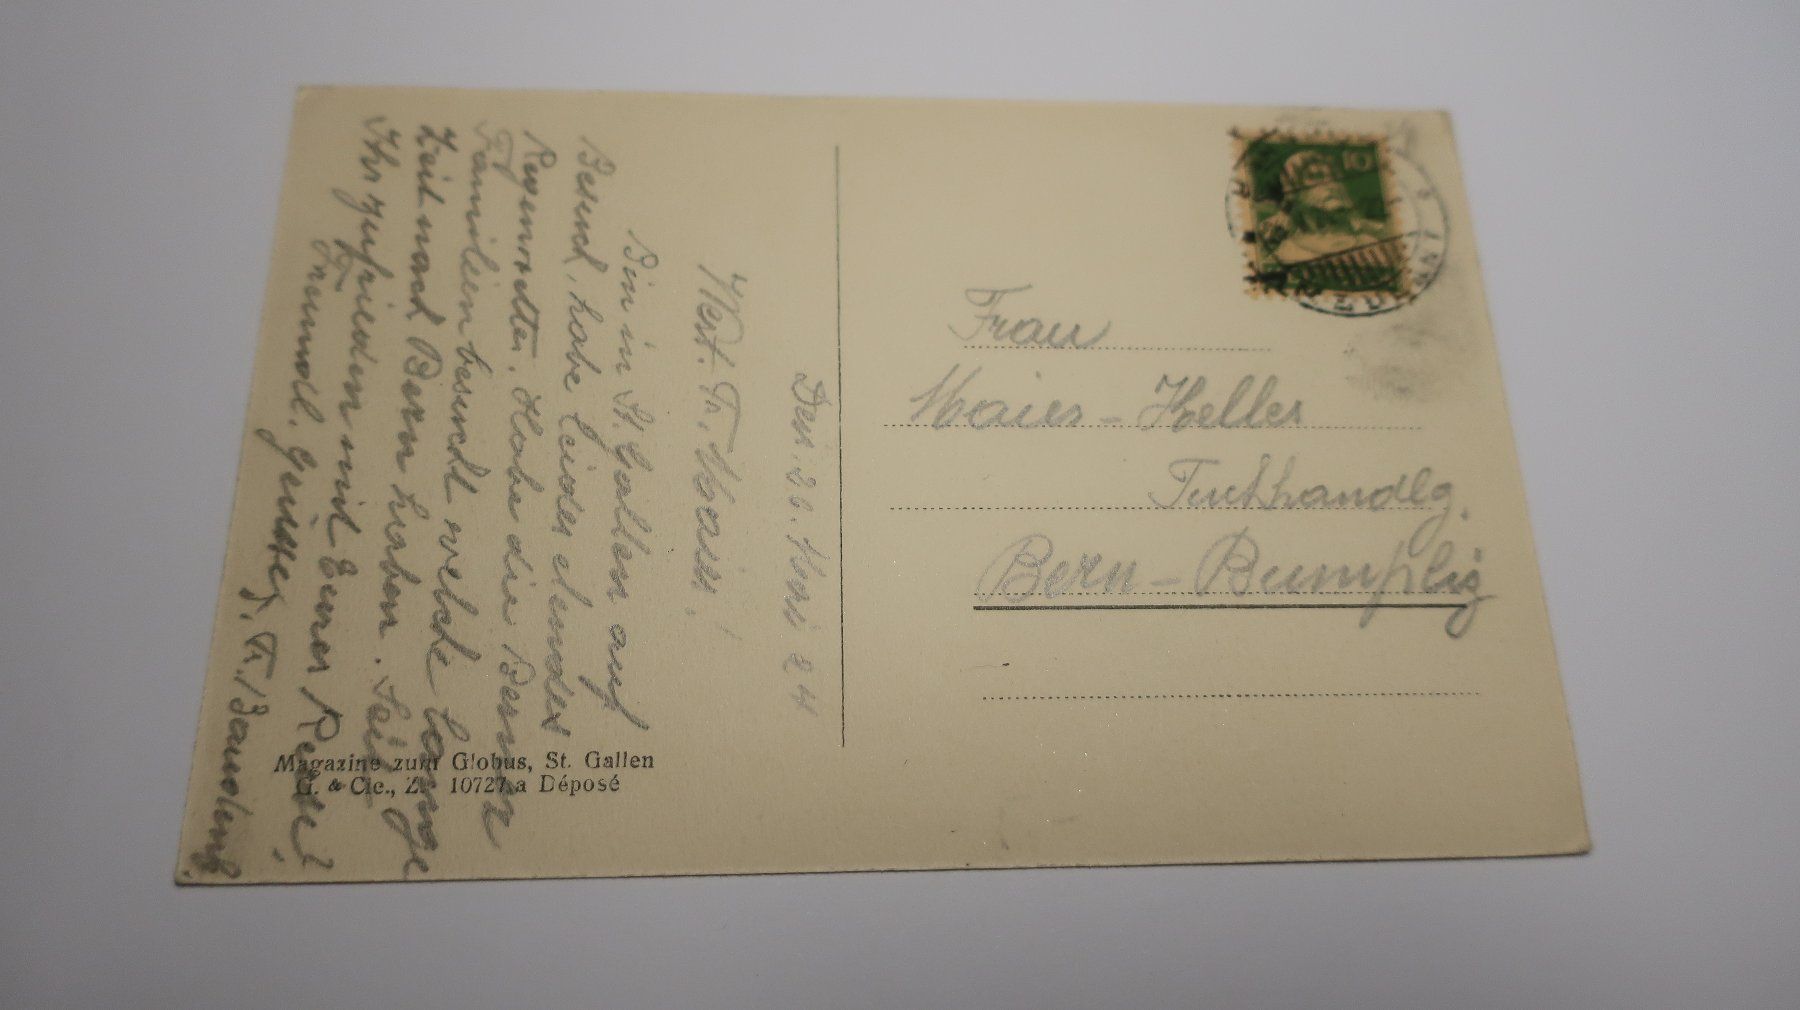 Den. 26. Mai 24
Wert. Fr. Maier!
Bin in St. Gallen auf
Besuch, habe leider elendes
Regenwetter. Habe die Berner
Familien besucht welche lange
Zeit nach Bern haben. Seit
Ihr zufrieden mit Eurer Reise?
Freundl. Grüsse, Fr.
Magazine zum Globus, St. Gallen
G. & Cie., Z. 10727 a Déposé
10
Frau
Maier-Keller
Tuchhandlg.
Bern-Bümpliz